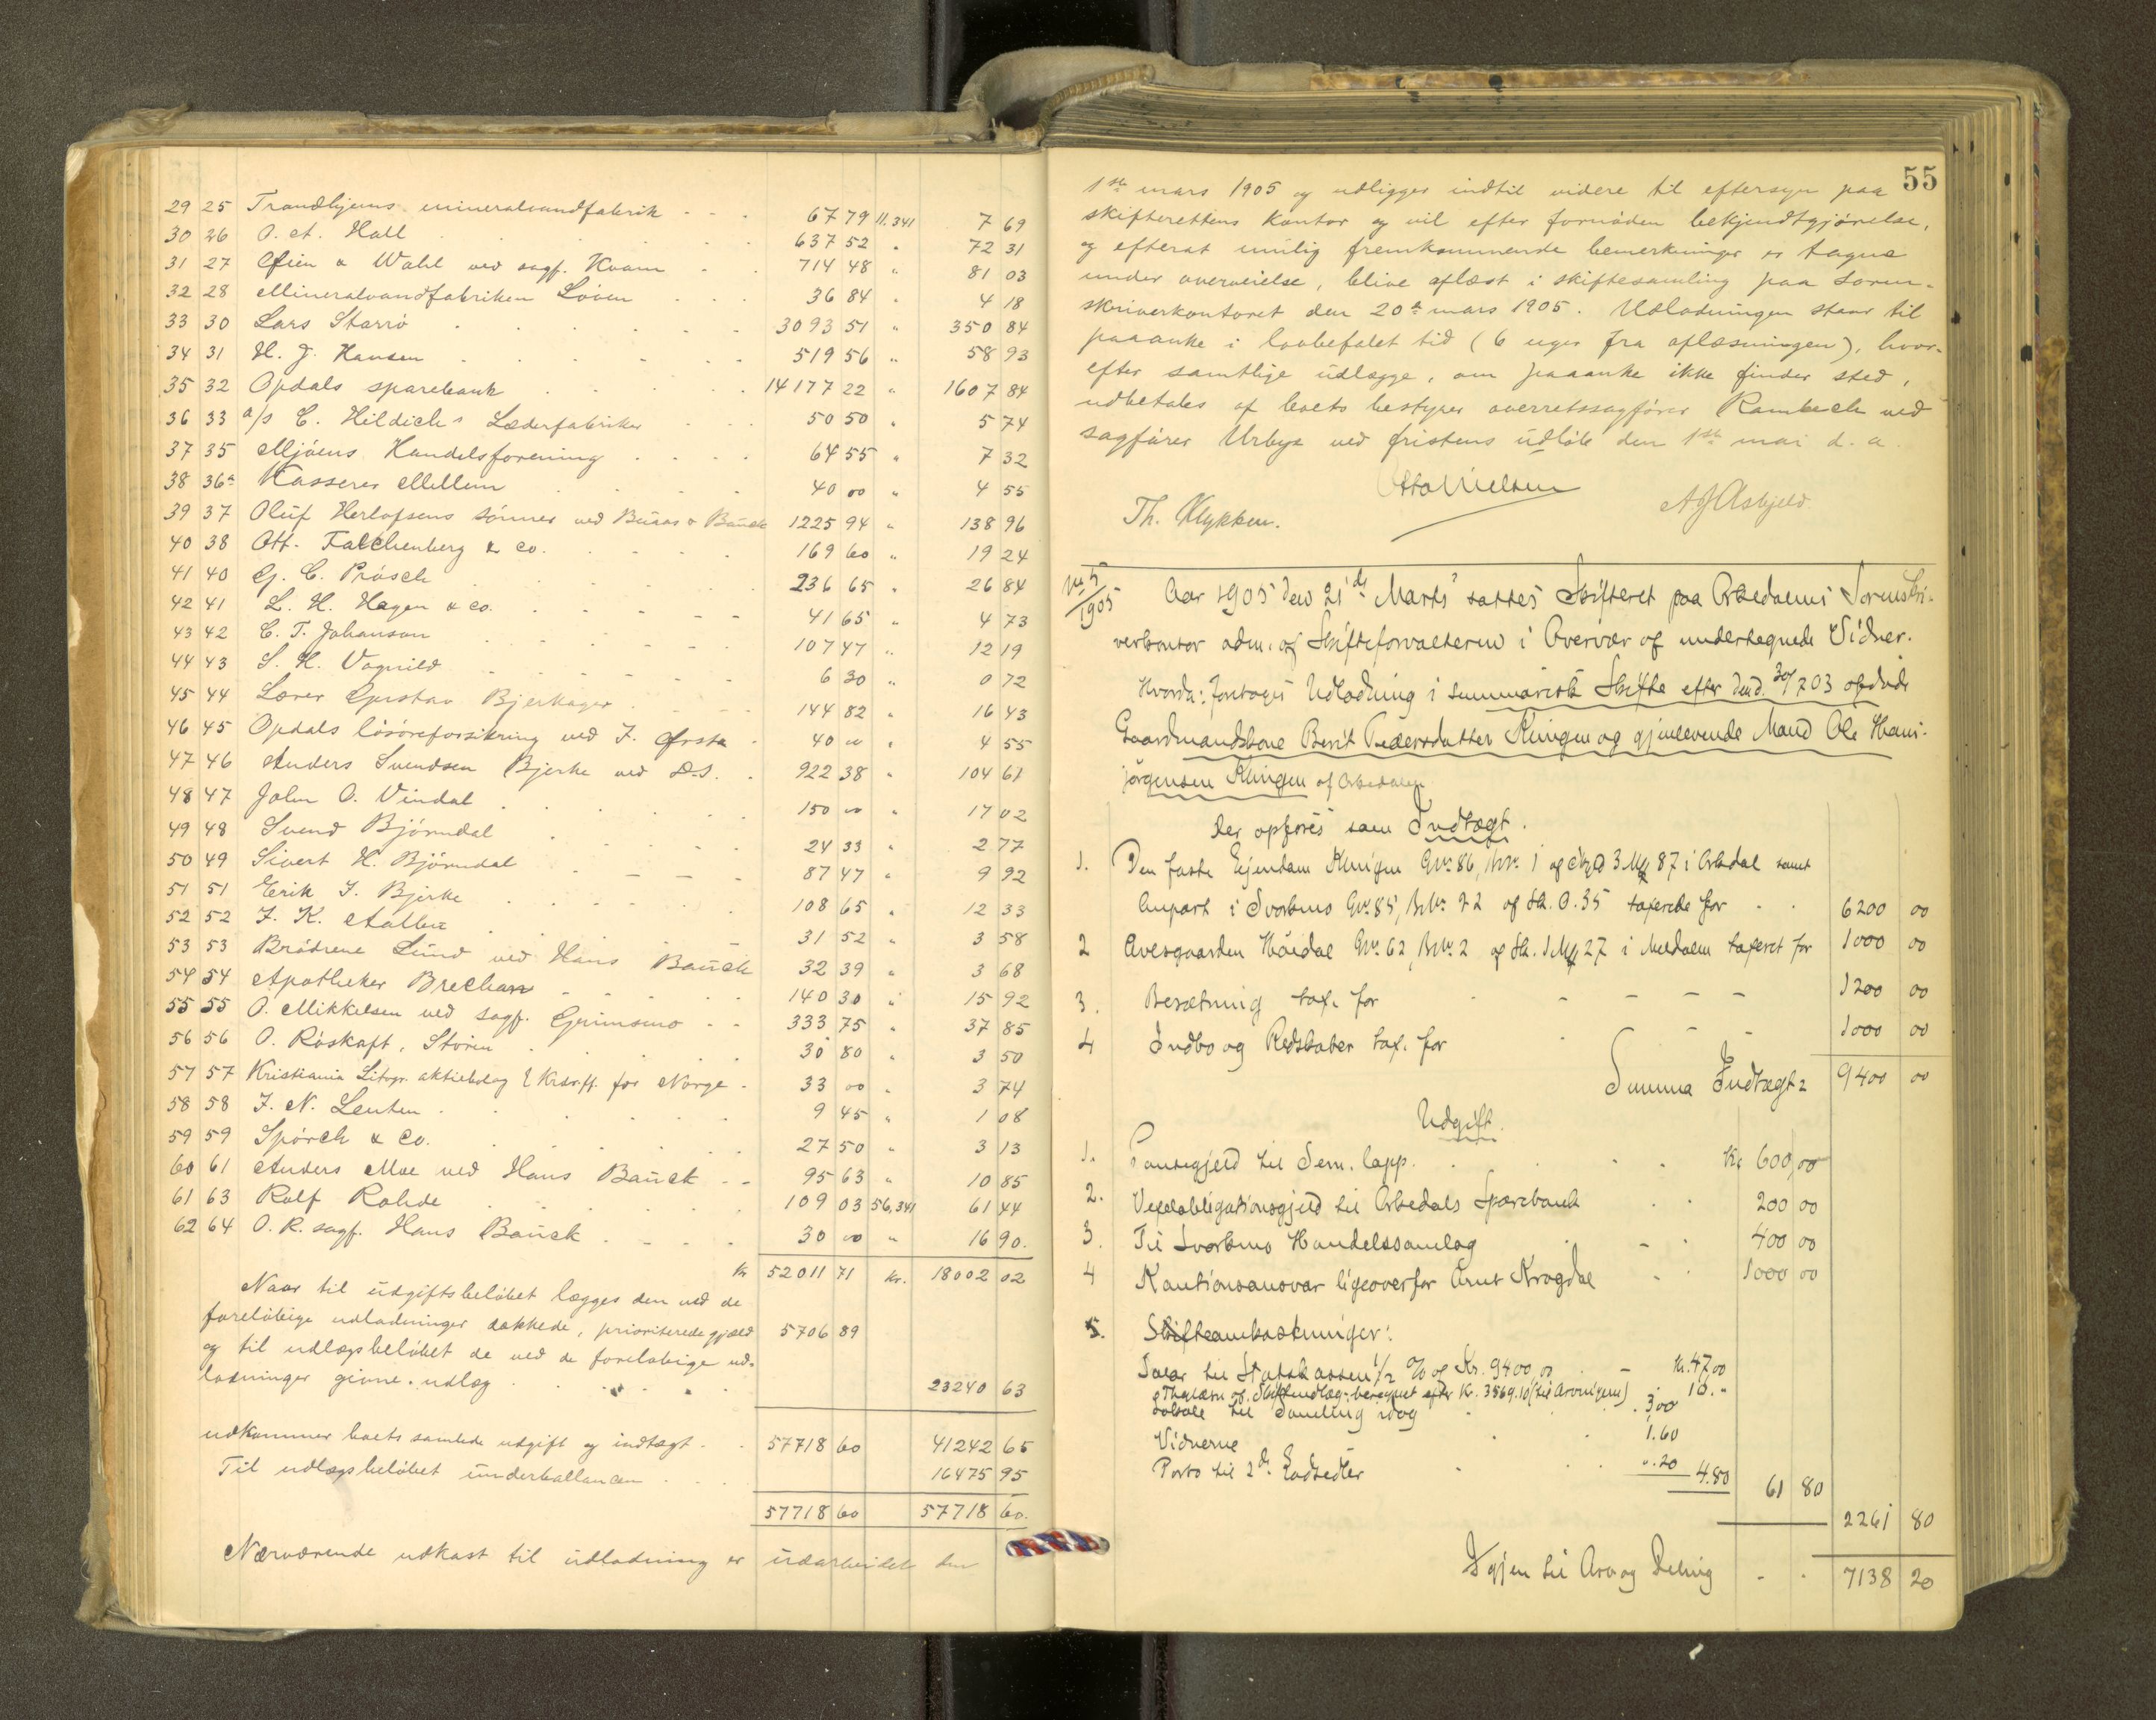 29 25 Trondhjems mineralvandfabrik 67 79 11.341 7 69
30 26 O. A. Hall 637 52 " 72 31
31 27 Øien & Wahl ved sagf. Kvam 714 48 " 81 03
32 28 Mineralvandfabriken Løven 36 84 " 4 18
33 30 Lars Storrø 3093 51 " 350 84
34 31 H. J. Hansen 519 56 " 58 93
35 32 Opdals sparebank 14177 22 " 1607 84
36 33 a/s C. Hildich's Læderfabriker 50 50 " 5 74
37 35 Mjøens Handelsforening 64 55 " 7 32
38 36a Kasserer Mellem 40 00 " 4 55
39 37 Oluf Herlofsens sønner ved Buaas & Bauck 1225 94 " 138 96
40 38 Ott. Falchenberg & co. 169 60 " 19 24
41 40 G. C. Prøsch 236 65 " 26 84
42 41 L. H. Hagen & co. 41 65 " 4 73
43 42 C. T. Johanson 107 47 " 12 19
44 43 S. H. Vognild 6 30 " 0 72
45 44 Lærer Gustav Bjerkager 144 82 " 16 43
46 45 Opdals løsøreforsikring ved J. Ørsta 40 00 " 4 55
47 46 Anders Svendsen Bjerke ved D.S. 922 38 " 104 61
48 47 John O. Vindal 150 00 " 17 02
49 48 Svend Bjørndal 24 33 2 77
50 49 Sivert H. Bjørndal 87 47 " 9 92
51 51 Erik J. Bjerke 108 65 " 12 33
52 52 J. K. 31 52 " 3 58
53 53 Brødrene Lund ved Hans Bauck 32 39 " 3 68
54 54 Apotheker Brechan 140 30 " 15 92
55 55 O. Mikkelsen ved sagf. Grimsmo 333 75 " 37 85
56 56 O. Røskaft, Støren 30 80 " 3 50
57 57 Kristiania Litogr. aktiebolag & Krdr.ft. for Norge 33 00 " 3 74
58 58 J. N. Leuten 9 45 " 1 08
59 59 Spørck & Co. 27 50 " 3 13
60 61 Anders Moe ved Hans Bauck 95 63 " 10 85
61 63 Rolf Rohde 109 03 56,341 61 44
62 64 O. R. sagf. Hans Bauck 30 00 " 16 90.
Kr 52011 71 Kr. 18002 02
Naar til udgiftsbeløbet lægges den ved de
foreløbige udlodninger dækkede, prioriterede gjæld 5706 89
og til udlægsbeløbet de ved de foreløbige ud-
lodninger givne udlæg 23240 63
udkommer boets samlede udgift og indtægt 57718 60 41242 65
Til udlægsbeløbet underballancen 16475 95
57718 60 57718 60.
Nærværende udkast til udlodning er udarbeidet den
55
1ste mars 1905 og udligges indtil videre til eftersyn paa
skifterettens kontor og vil efter fornøden bekjendtgjørelse,
og efterat mulig fremkommende bemerkninger er tagne
under overveielse, blive oplæst i skiftesamling paa Soren-
skriverkontoret den 20de mars 1905. Udlodningen staar til
paaanke i lovbefalet tid (6 uger fra oplæsningen), hvor-
efter samtlige udlægge, om paaanke ikke finder sted,
udbetales af boets bestyrer overretssagfører Rambech ved
sagfører Urbye ved fristens udløb den 1ste mai d. a.
Otto Nielsen
Th. Klykken. A J Asbjeld
No 5/1905 Aar 1905 den 21de Marts sattes Skifteret paa Orkedalens Sorenskri-
verkontor adm. af Skifteforvalteren i Overvær af undertegnede Vidner.
Hvorda: foretoges Udlodning i summarisk Skifte efter den d. 30/7 03 afdøde
Gaardmandskone Berit Pedersdatter Klingen og gjenlevende Mand Ole Hans-
jørgensen Klingen af Orkedalen
Der opføres som Indtægt.
1. Den faste Eiendom Klingen Gno 86, Bno 1 af Skyld 3 Mk 87 i Orkedal samt
Anpart i Svorkmo Gno 85, Bno 22 af Sk. 0.35 taxerede for 6200 00
2 Avlsgaarden Høidal Gno 62, Bno 2 af Sk. 1 Mk 27 i Meldalen taxeret for 1000 00
3. Besætning tax. for 1200 00
4 Indbo og Redskaber tax. for 1000 00
Summa Indtægt 9400 00
Udgift.
1. Pantegjeld til Sem. lapp. Kr 600 00
2. Vexelobligationsgjeld til Orkedals Sparebank 200 00
3. Til Svorkmo Handelssamlag 400 00
4 Kautionsansvar ligeoverfor Arnt Krogdal 1000 00
5. Skifteomkostninger:
Svar til Statskassen 1/2 % af Kr. 9400,00 Kr. 47,00
Kr. 3569.10 (til Arvingerne) 10.-
til Samling idag 3,00
Vidnerne 1.60
Porto til 2de Lodsedler 0.20 4.80 61 80
2261 80
Igjen til Arv og Deling 7138 20